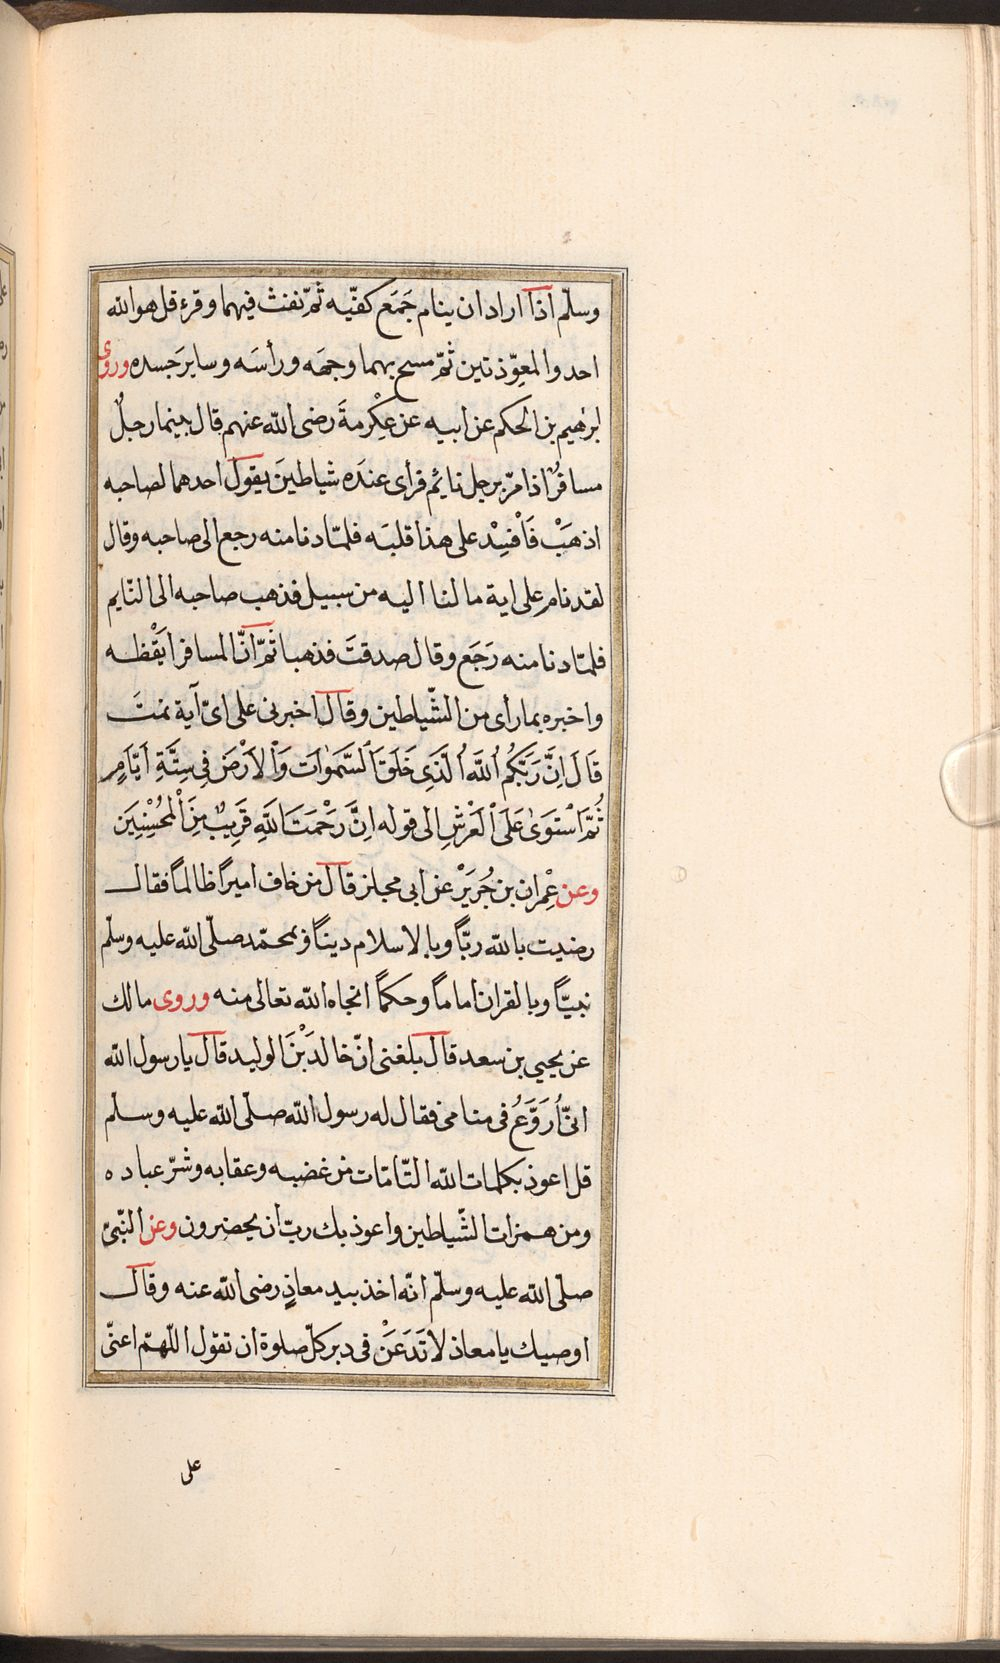 وسلّم اذا اراد ان ينام جَمَع كفيّه ثمّ نفث فيهما وقرء قل هو الله
احد والمعوّذتين ثمّ مسح بهما وجهَه ورأسَه وسايرَ جسده وروى
ابرهيم بن الحكم عن ابيه عن عِكْرمةَ رضى الله عنهم قال بينما رجلٌ
مسافرٌ اذا مرّ برجل نائم فرأى عندَه شياطينَ يقول احدهما لصاحبه
اذهَبْ فَاْفسِدْ على هذا قلبَه فلمّا دنا منه رجع الى صاحبه وقال
لقد نام على اية ما لنا اليه من سبيل فذهب صاحبه الى النّايم
فلمّا دنا منه رَجَع وقال صدقتَ فذهبا ثمّ انّ المسافر ايَقْظه
واخبره بما رأى من الشّياطين وقال اخبرنى على اىّ آية نمتَ
قَالَ اِنَّ رَبَّكُمُ اللّٰهُ الَّذى خَلَقَ السَّمٰوَات وَاْلاَرْضَ فِى سِتَّةِ اَيَّامٍ
ثُمَّ اسْتَوىٰ عَلَى الْعَرْشِ الى قوله اِنَّ رَحْمَتَ اللّٰهِ قَرِيبٌ مِنَ الْمُحْسِنِيَن
وعن عِمْران بن جُرَيْر عن ابى مجلز قال من خاف اميراً ظالماً فقال
رضيت بالله ربّاً وبالاسلام ديناً وبمحمّد صلّى الله عليه وسلّم
نبيّاً وبالقران اماماً وحكماً انجاه الله تعالى منه وروى مالك
عن يحيى بن سعد قال بلغنى انّ خالدَ بْنَ الوليد قال يا رسول الله
انّى اُرَوَّعُ فى منامى فقال له رسول الله صلّى الله عليه وسلّم
قل اعوذ بكلمات الله التّامّات من غضبه وعقابه وشرّ عباده
ومن همزات الشّياطين واعوذ بك ربّ ان يحضرون وعن النّبىّ
صلّى الله عليه وسلّم انّه اخذ بيد معاذٍ رضى الله عنه وقال
اوصيك يا معاذ لا تَدَعَنْ فى دبر كلّ صلوة ان تقول اللّهمّ اعنّى
على